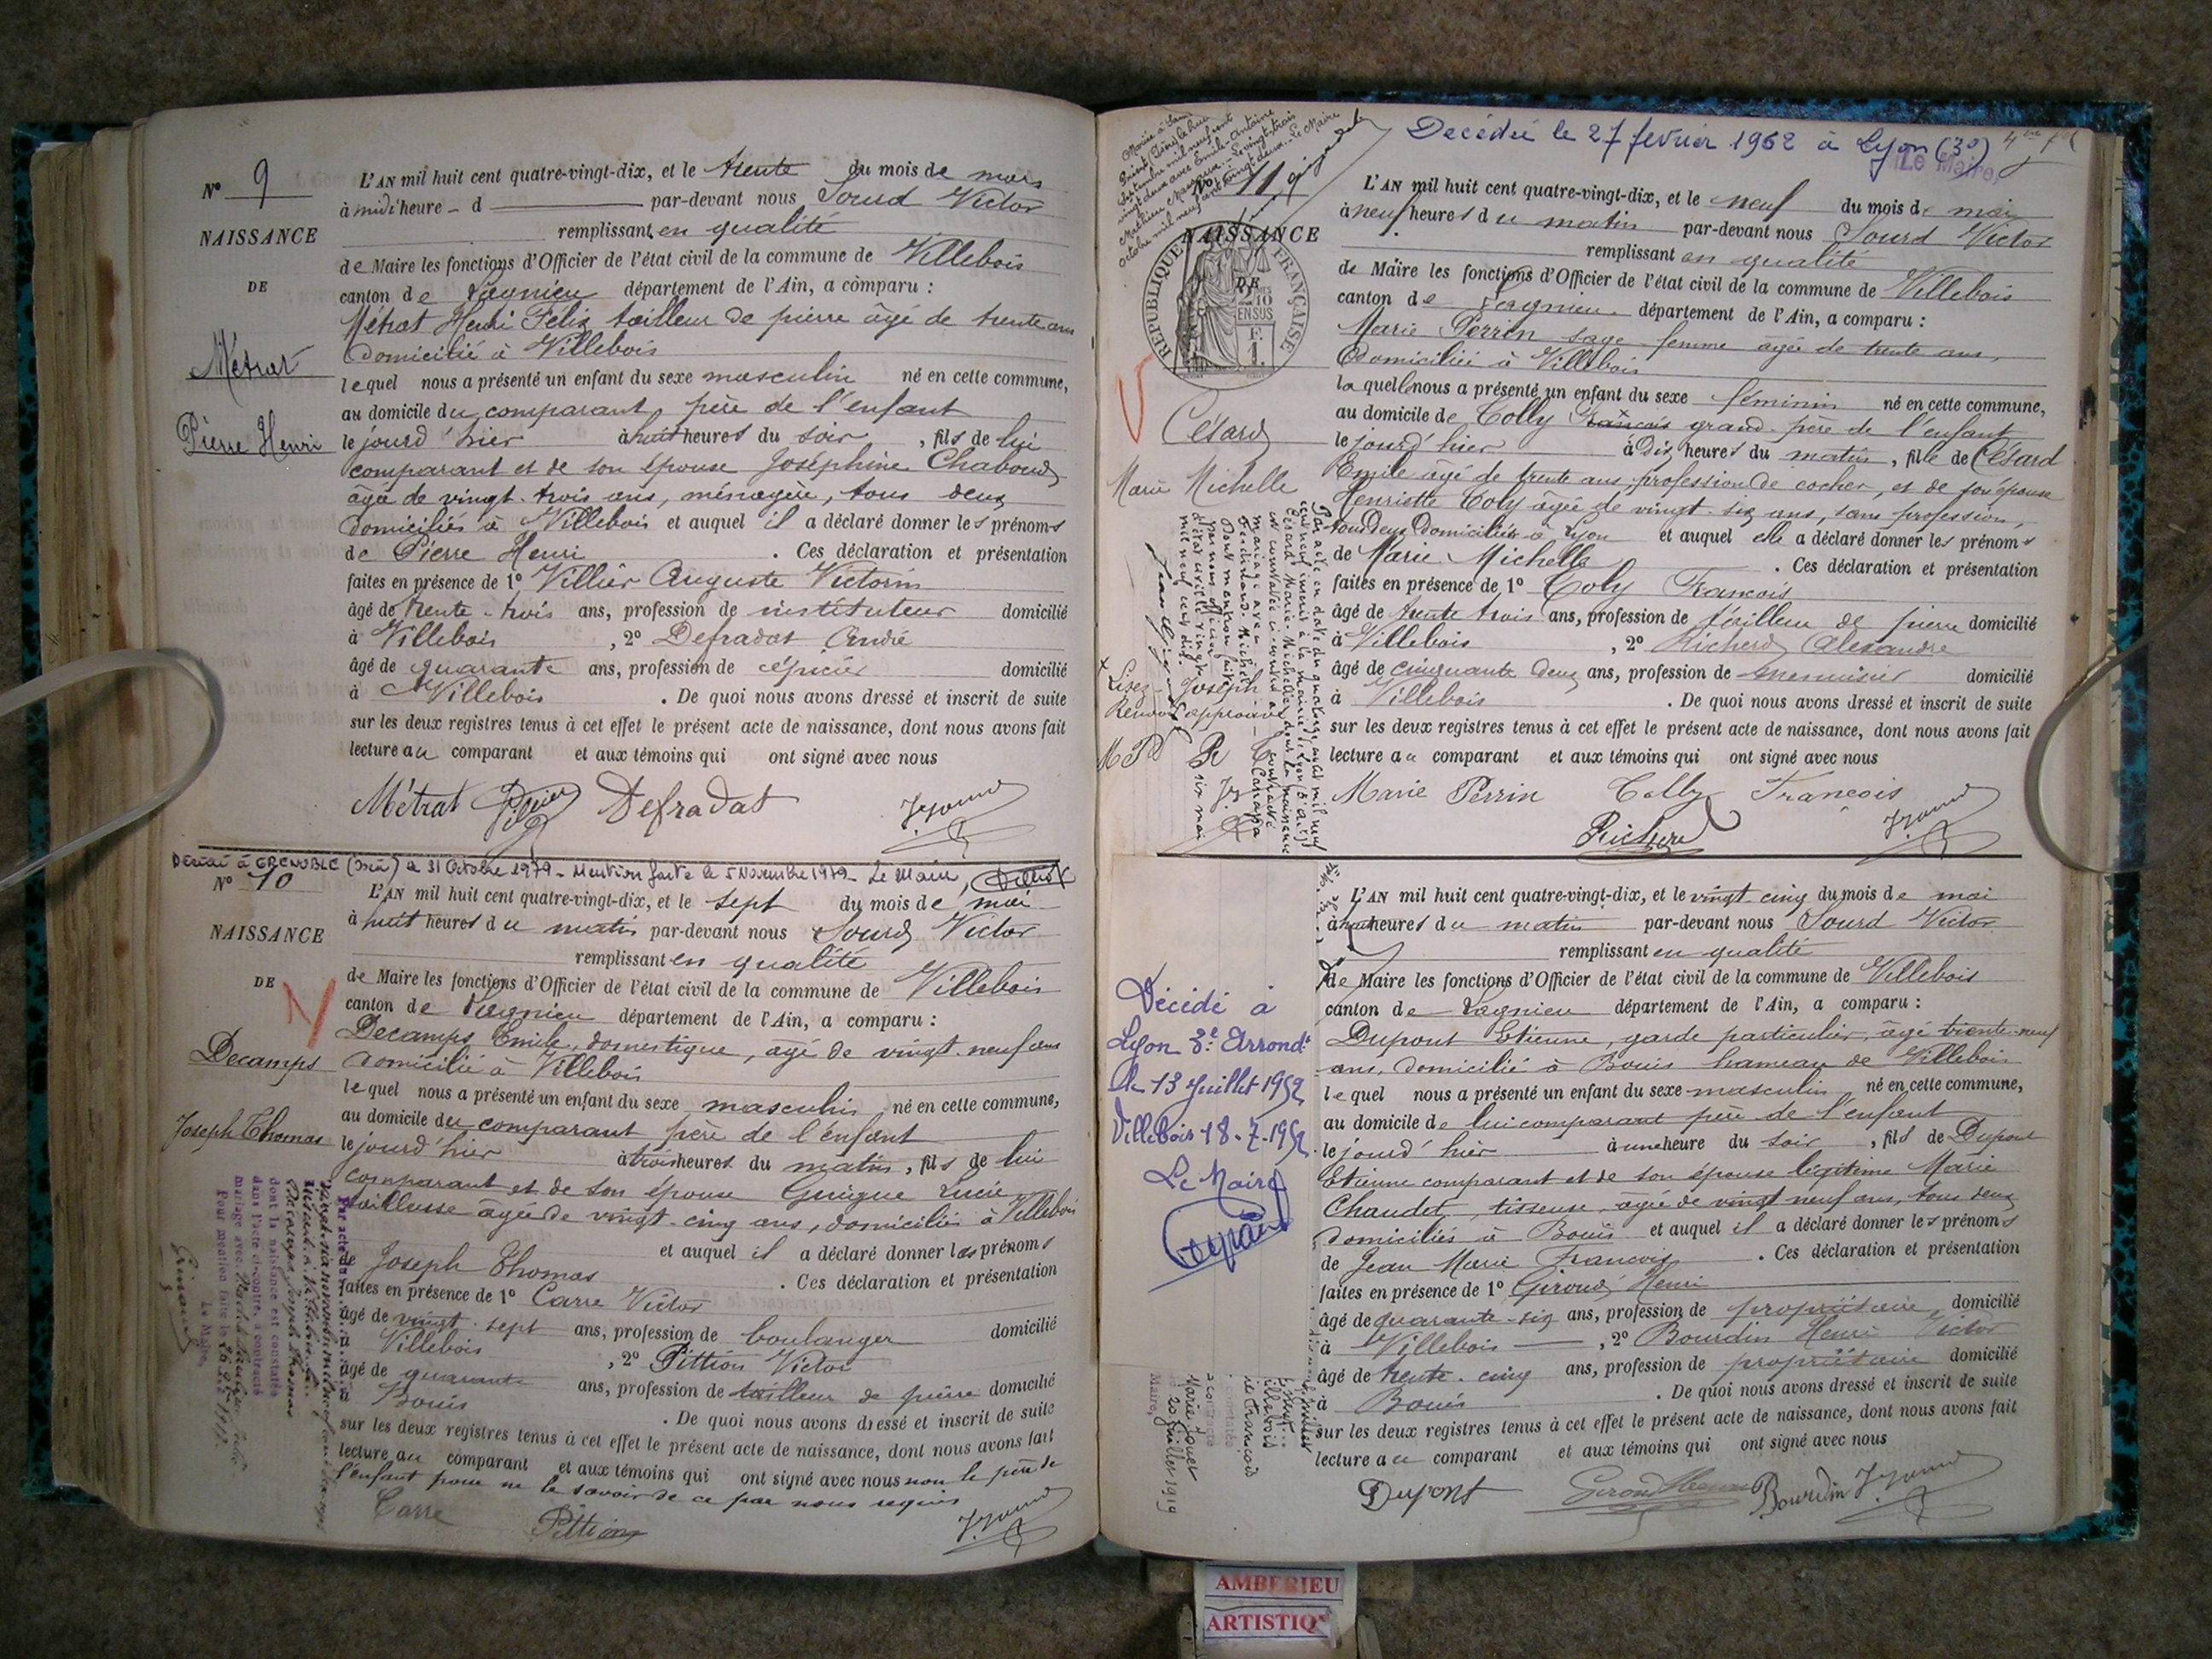 Nº 9
NAISSANCE
DE
Métrat
Pierre Henri
L'AN mil huit cent quatre-vingt-dix, et le trente du mois de mars
à midi heure - d par-devant nous Sourd Victor
remplissant en qualité
de Maire les fonctions d'Officier de l'état civil de la commune de Villebois
canton de Lagnieu département de l'Ain, a comparu :
Métrat Henri Felix tailleur de pierre âgé de trente ans
domicilié à Villebois
lequel nous a présenté un enfant du sexe masculin né en cette commune,
au domicile du comparant, père de l'enfant
le jourd'hier à huit heures du soir, fils de lui
comparant et de son épouse Joséphine Chaboud
âgée de vingt-trois ans, ménagère, tous deux
domiciliés à Villebois et auquel il a déclaré donner les prénoms
de Pierre Henri. Ces déclaration et présentation
faites en présence de 1º Villier Auguste Victorin
âgé de trente-trois ans, profession de instituteur domicilié
à Villebois, 2º Defradat André
âgé de quarante ans, profession de épicier domicilié
à Villebois. De quoi nous avons dressé et inscrit de suite
sur les deux registres tenus à cet effet le présent acte de naissance, dont nous avons fait
lecture au comparant et aux témoins qui ont signé avec nous
Métrat Defradat
Décédé à GRENOBLE (Isère) le 31 Octobre 1979 - Mention faite le 5 Novembre 1979 - Le Maire,
Nº 10
NAISSANCE
DE
Decamps
Joseph Thomas
L'AN mil huit cent quatre-vingt-dix, et le sept du mois de mai
à huit heures du matin par-devant nous Sourd Victor
remplissant en qualité
de Maire les fonctions d'Officier de l'état civil de la commune de Villebois
canton de Lagnieu département de l'Ain, a comparu :
Decamps Emile, domestique, âgé de vingt-neuf ans
domicilié à Villebois
lequel nous a présenté un enfant du sexe masculin né en cette commune,
au domicile du comparant père de l'enfant
le jourd'hier à trois heures du matin, fils de lui
comparant et de son épouse Guigue Lucie
tailleuse âgée de vingt-cinq ans, domiciliés à Villebois
et auquel il a déclaré donner les prénoms
de Joseph Thomas. Ces déclaration et présentation
faites en présence de 1º Carre Victor
âgé de vingt-sept ans, profession de boulanger domicilié
à Villebois, 2º Pittion Victor
âgé de quarante ans, profession de tailleur de pierre domicilié
à Bouis. De quoi nous avons dressé et inscrit de suite
sur les deux registres tenus à cet effet le présent acte de naissance, dont nous avons fait
lecture au comparant et aux témoins qui ont signé avec nous non le père de
l'enfant pour ne le savoir de ce par nous requis
Carre Pittion
dont la naissance est constatée
dans l'acte ci-contre, a contracté
mariage avec
Pour mention faite le
Le Maire,
Décédée le 27 février 1962 à Lyon (3e)
Le Maire,
Nº 11
NAISSANCE
DE
RÉPUBLIQUE FRANÇAISE
Césard
Marie Michelle
L'AN mil huit cent quatre-vingt-dix, et le neuf du mois de mai
à neuf heures du matin par-devant nous Sourd Victor
remplissant en qualité
de Maire les fonctions d'Officier de l'état civil de la commune de Villebois
canton de Lagnieu département de l'Ain, a comparu :
Marie Perrin sage-femme agée de trente ans,
domiciliée à Villebois
laquelle nous a présenté un enfant du sexe féminin né en cette commune,
au domicile de Colly François grand-père de l'enfant
le jourd'hier à Dix heures du matin, fille de Césard
Emile agé de trente ans profession de cocher, et de son épouse
Henriette Coly âgée de vingt-six ans, sans profession,
tous deux domiciliés à Lyon et auquel elle a déclaré donner les prénoms
de Marie Michelle. Ces déclaration et présentation
faites en présence de 1º Coly François
âgé de trente trois ans, profession de tailleur de pierre domicilié
à Villebois, 2º Richerd Alexandre
âgé de cinquante deux ans, profession de menuisier domicilié
à Villebois. De quoi nous avons dressé et inscrit de suite
sur les deux registres tenus à cet effet le présent acte de naissance, dont nous avons fait
lecture au comparant et aux témoins qui ont signé avec nous
Marie Perrin Colly François
Richerd
Lisez Joseph
Renvoi approuvé
Décédé à
Lyon 3e Arrondt
le 13 Juillet 1952
Villebois 18-7-1952
Le Maire
L'AN mil huit cent quatre-vingt-dix, et le vingt cinq du mois de mai
à huit heures du matin par-devant nous Sourd Victor
remplissant en qualité
de Maire les fonctions d'Officier de l'état civil de la commune de Villebois
canton de Lagnieu département de l'Ain, a comparu :
Dupont Etienne, garde particulier, âgé trente-neuf
ans, domicilié à Bouis hameau de Villebois
lequel nous a présenté un enfant du sexe masculin né en cette commune,
au domicile de lui comparant père de l'enfant
le jourd'hier à une heure du soir, fils de Dupont
Etienne comparant et de son épouse légitime Marie
Chaudet, tisseuse, âgée de vingt neuf ans, tous deux
domiciliés à Bouis et auquel il a déclaré donner les prénoms
de Jean Marie François. Ces déclaration et présentation
faites en présence de 1º Giroud Henri
âgé de quarante-six ans, profession de propriétaire, domicilié
à Villebois, 2º Bourdin Henri Victor
âgé de trente-cinq ans, profession de propriétaire domicilié
à Bouis. De quoi nous avons dressé et inscrit de suite
sur les deux registres tenus à cet effet le présent acte de naissance, dont nous avons fait
lecture au comparant et aux témoins qui ont signé avec nous
Dupont Bourdin
AMBERIEU
ARTISTIQ